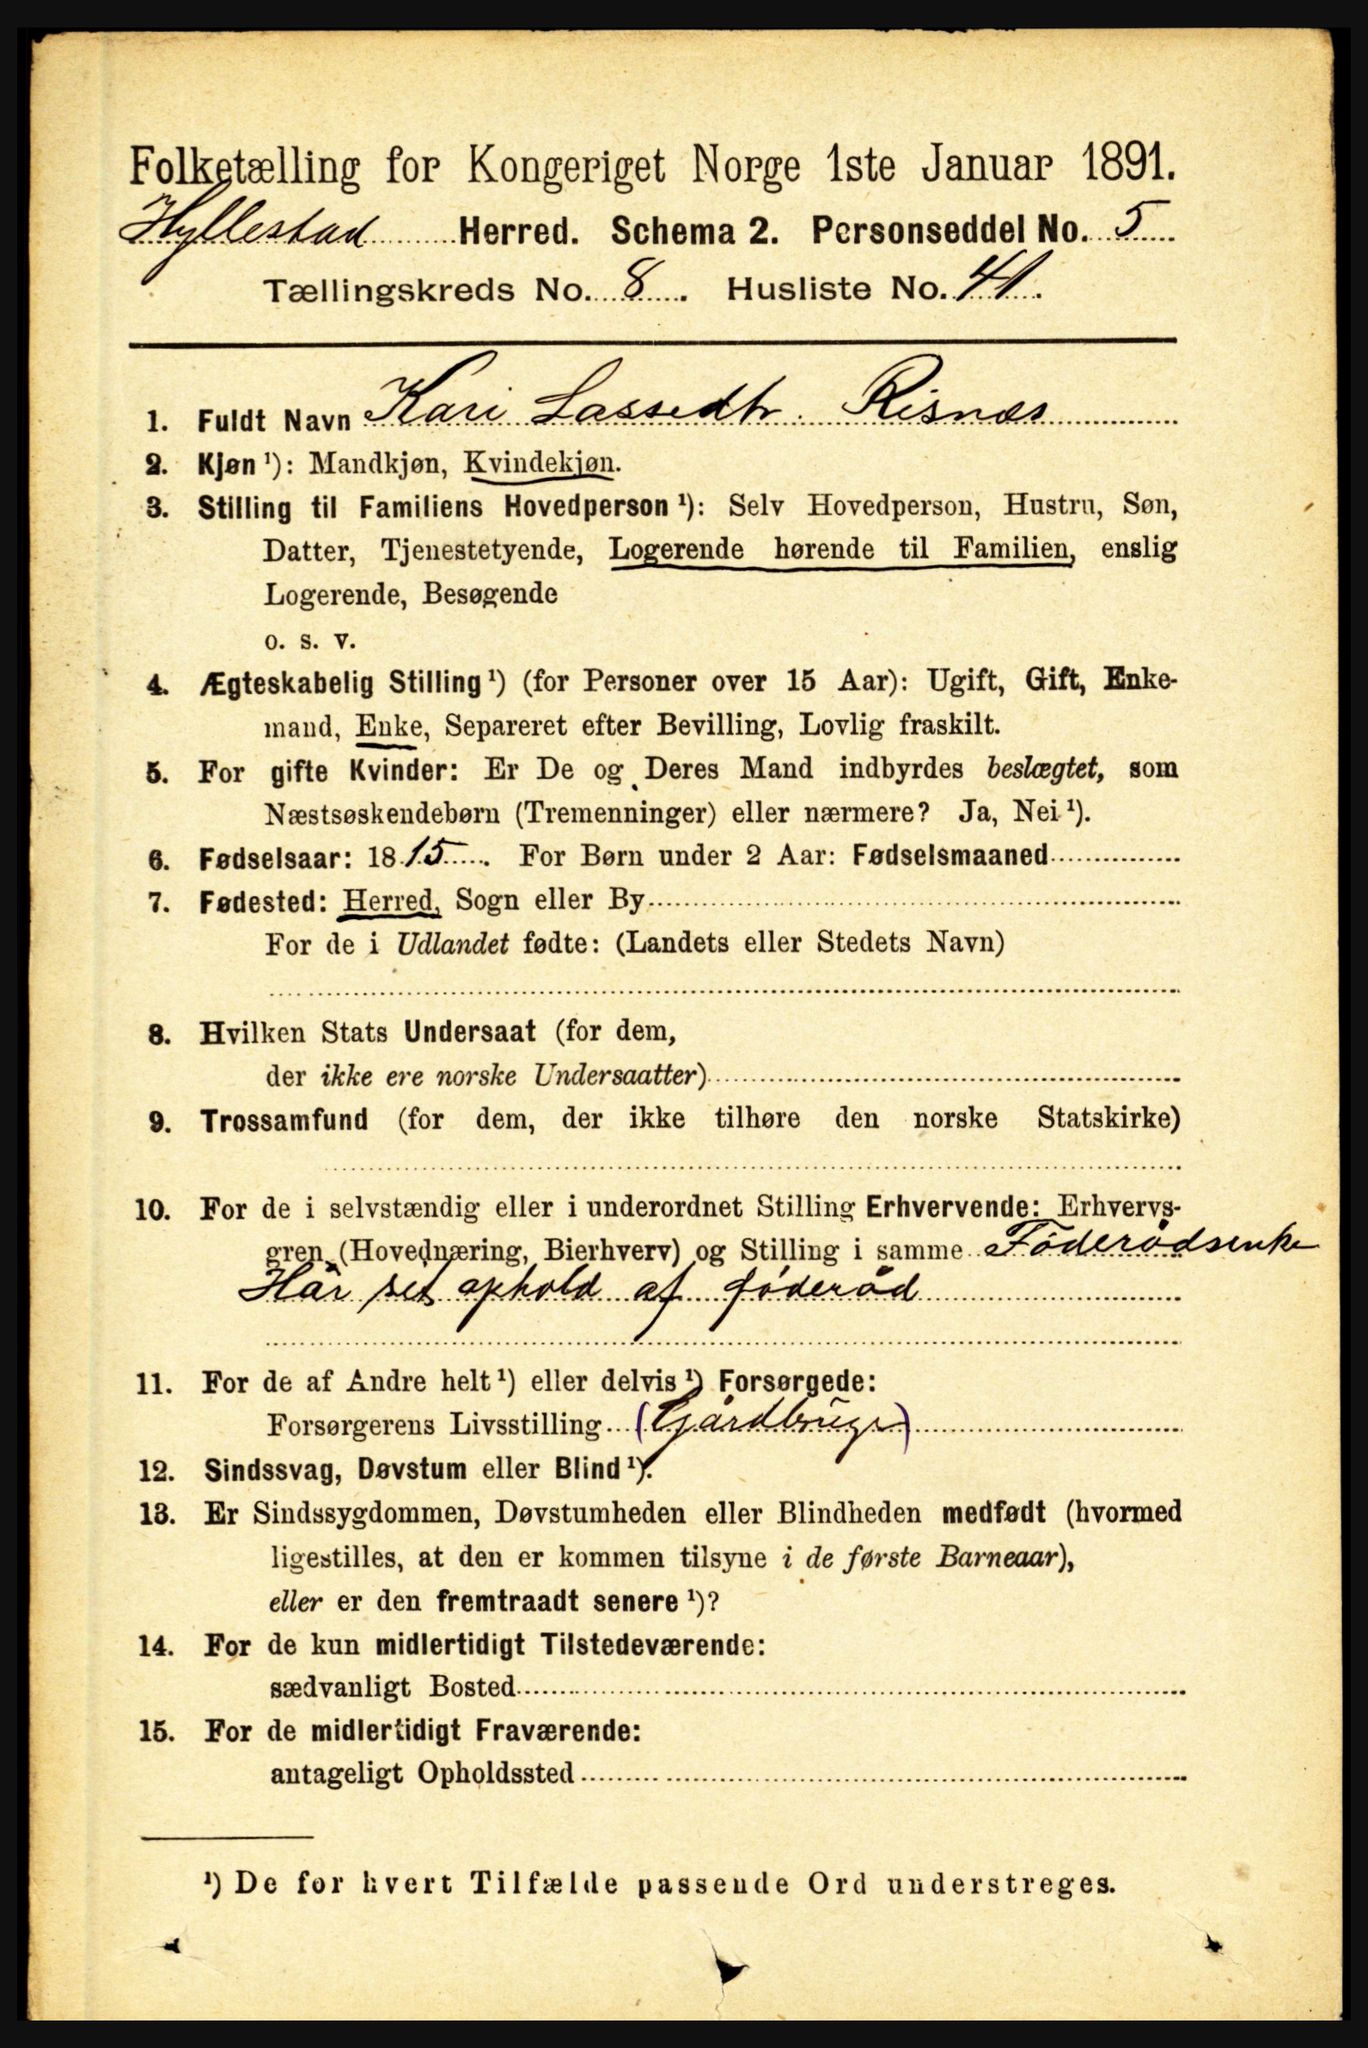 Folketælling for Kongeriget Norge 1ste Januar 1891.
Hyllestad Herred. Schema 2. Personseddel No. 5
Tællingskreds No. 8. Husliste No. 41.
1. Fuldt Navn Kari Lassedtr. Risnæs
2. Kjøn ¹): Mandkjøn, Kvindekjøn.
3. Stilling til Familiens Hovedperson ¹): Selv Hovedperson, Hustru, Søn,
Datter, Tjenestetyende, Logerende hørende til Familien, enslig
Logerende, Besøgende
o. s. v.
4. Ægteskabelig Stilling ¹) (for Personer over 15 Aar): Ugift, Gift, Enke-
mand, Enke, Separeret efter Bevilling, Lovlig fraskilt.
5. For gifte Kvinder: Er De og Deres Mand indbyrdes beslægtet, som
Næstsøskendebørn (Tremenninger) eller nærmere? Ja, Nei ¹).
6. Fødselsaar: 1815. For Børn under 2 Aar: Fødselsmaaned
7. Fødested: Herred, Sogn eller By
For de i Udlandet fødte: (Landets eller Stedets Navn)
8. Hvilken Stats Undersaat (for dem,
der ikke ere norske Undersaatter)
9. Trossamfund (for dem, der ikke tilhøre den norske Statskirke)
10. For de i selvstændig eller i underordnet Stilling Erhvervende: Erhvervs-
gren (Hovednæring, Bierhverv) og Stilling i samme Föderådsenke
Hár set ophold af föderåd
11. For de af Andre helt ¹) eller delvis ¹) Forsørgede:
Forsørgerens Livsstilling (Gårdbruger)
12. Sindssvag, Døvstum eller Blind ¹).
13. Er Sindssygdommen, Døvstumheden eller Blindheden medfødt (hvormed
ligestilles, at den er kommen tilsyne i de første Barneaar),
eller er den fremtraadt senere ¹)?
14. For de kun midlertidigt Tilstedeværende:
sædvanligt Bosted
15. For de midlertidigt Fraværende:
antageligt Opholdssted
¹) De for hvert Tilfælde passende Ord understreges.